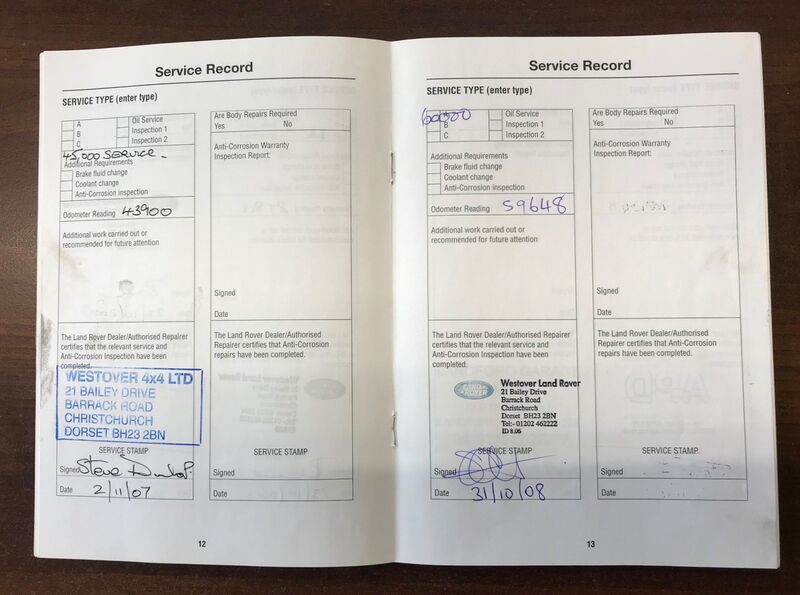 Service Record
SERVICE TYPE (enter type)
A
B
C
Oil Service
Inspection 1
Inspection 2
45,000 SERVICE.
Additional Requirements
Brake fluid change
Coolant change
Anti-Corrosion inspection
Odometer Reading 43900
Additional work carried out or
recommended for future attention
The Land Rover Dealer/Authorised Repairer
certifies that the relevant service and
Anti-Corrosion Inspection have been
completed.
WESTOVER 4x4 LTD
21 BAILEY DRIVE
BARRACK ROAD
CHRISTCHURCH
DORSET BH23 2BN
SERVICE STAMP
Signed Steve Dunlop.
Date 2/11/07
Are Body Repairs Required
Yes No
Anti-Corrosion Warranty
Inspection Report:
Signed
Date
The Land Rover Dealer/Authorised
Repairer certifies that Anti-Corrosion
repairs have been completed.
SERVICE STAMP
Signed
Date
12
Service Record
SERVICE TYPE (enter type)
60000
B
C
Oil Service
Inspection 1
Inspection 2
Additional Requirements
Brake fluid change
Coolant change
Anti-Corrosion inspection
Odometer Reading 59648
Additional work carried out or
recommended for future attention
The Land Rover Dealer/Authorised Repairer
certifies that the relevant service and
Anti-Corrosion Inspection have been
completed.
LAND ROVER
Westover Land Rover
21 Bailey Drive
Barrack Road
Christchurch
Dorset BH23 2BN
Tel:- 01202 462222
ID 8.06
SERVICE STAMP
Signed
Date 31/10/08
Are Body Repairs Required
Yes No
Anti-Corrosion Warranty
Inspection Report:
Signed
Date
The Land Rover Dealer/Authorised
Repairer certifies that Anti-Corrosion
repairs have been completed.
SERVICE STAMP
Signed
Date
13